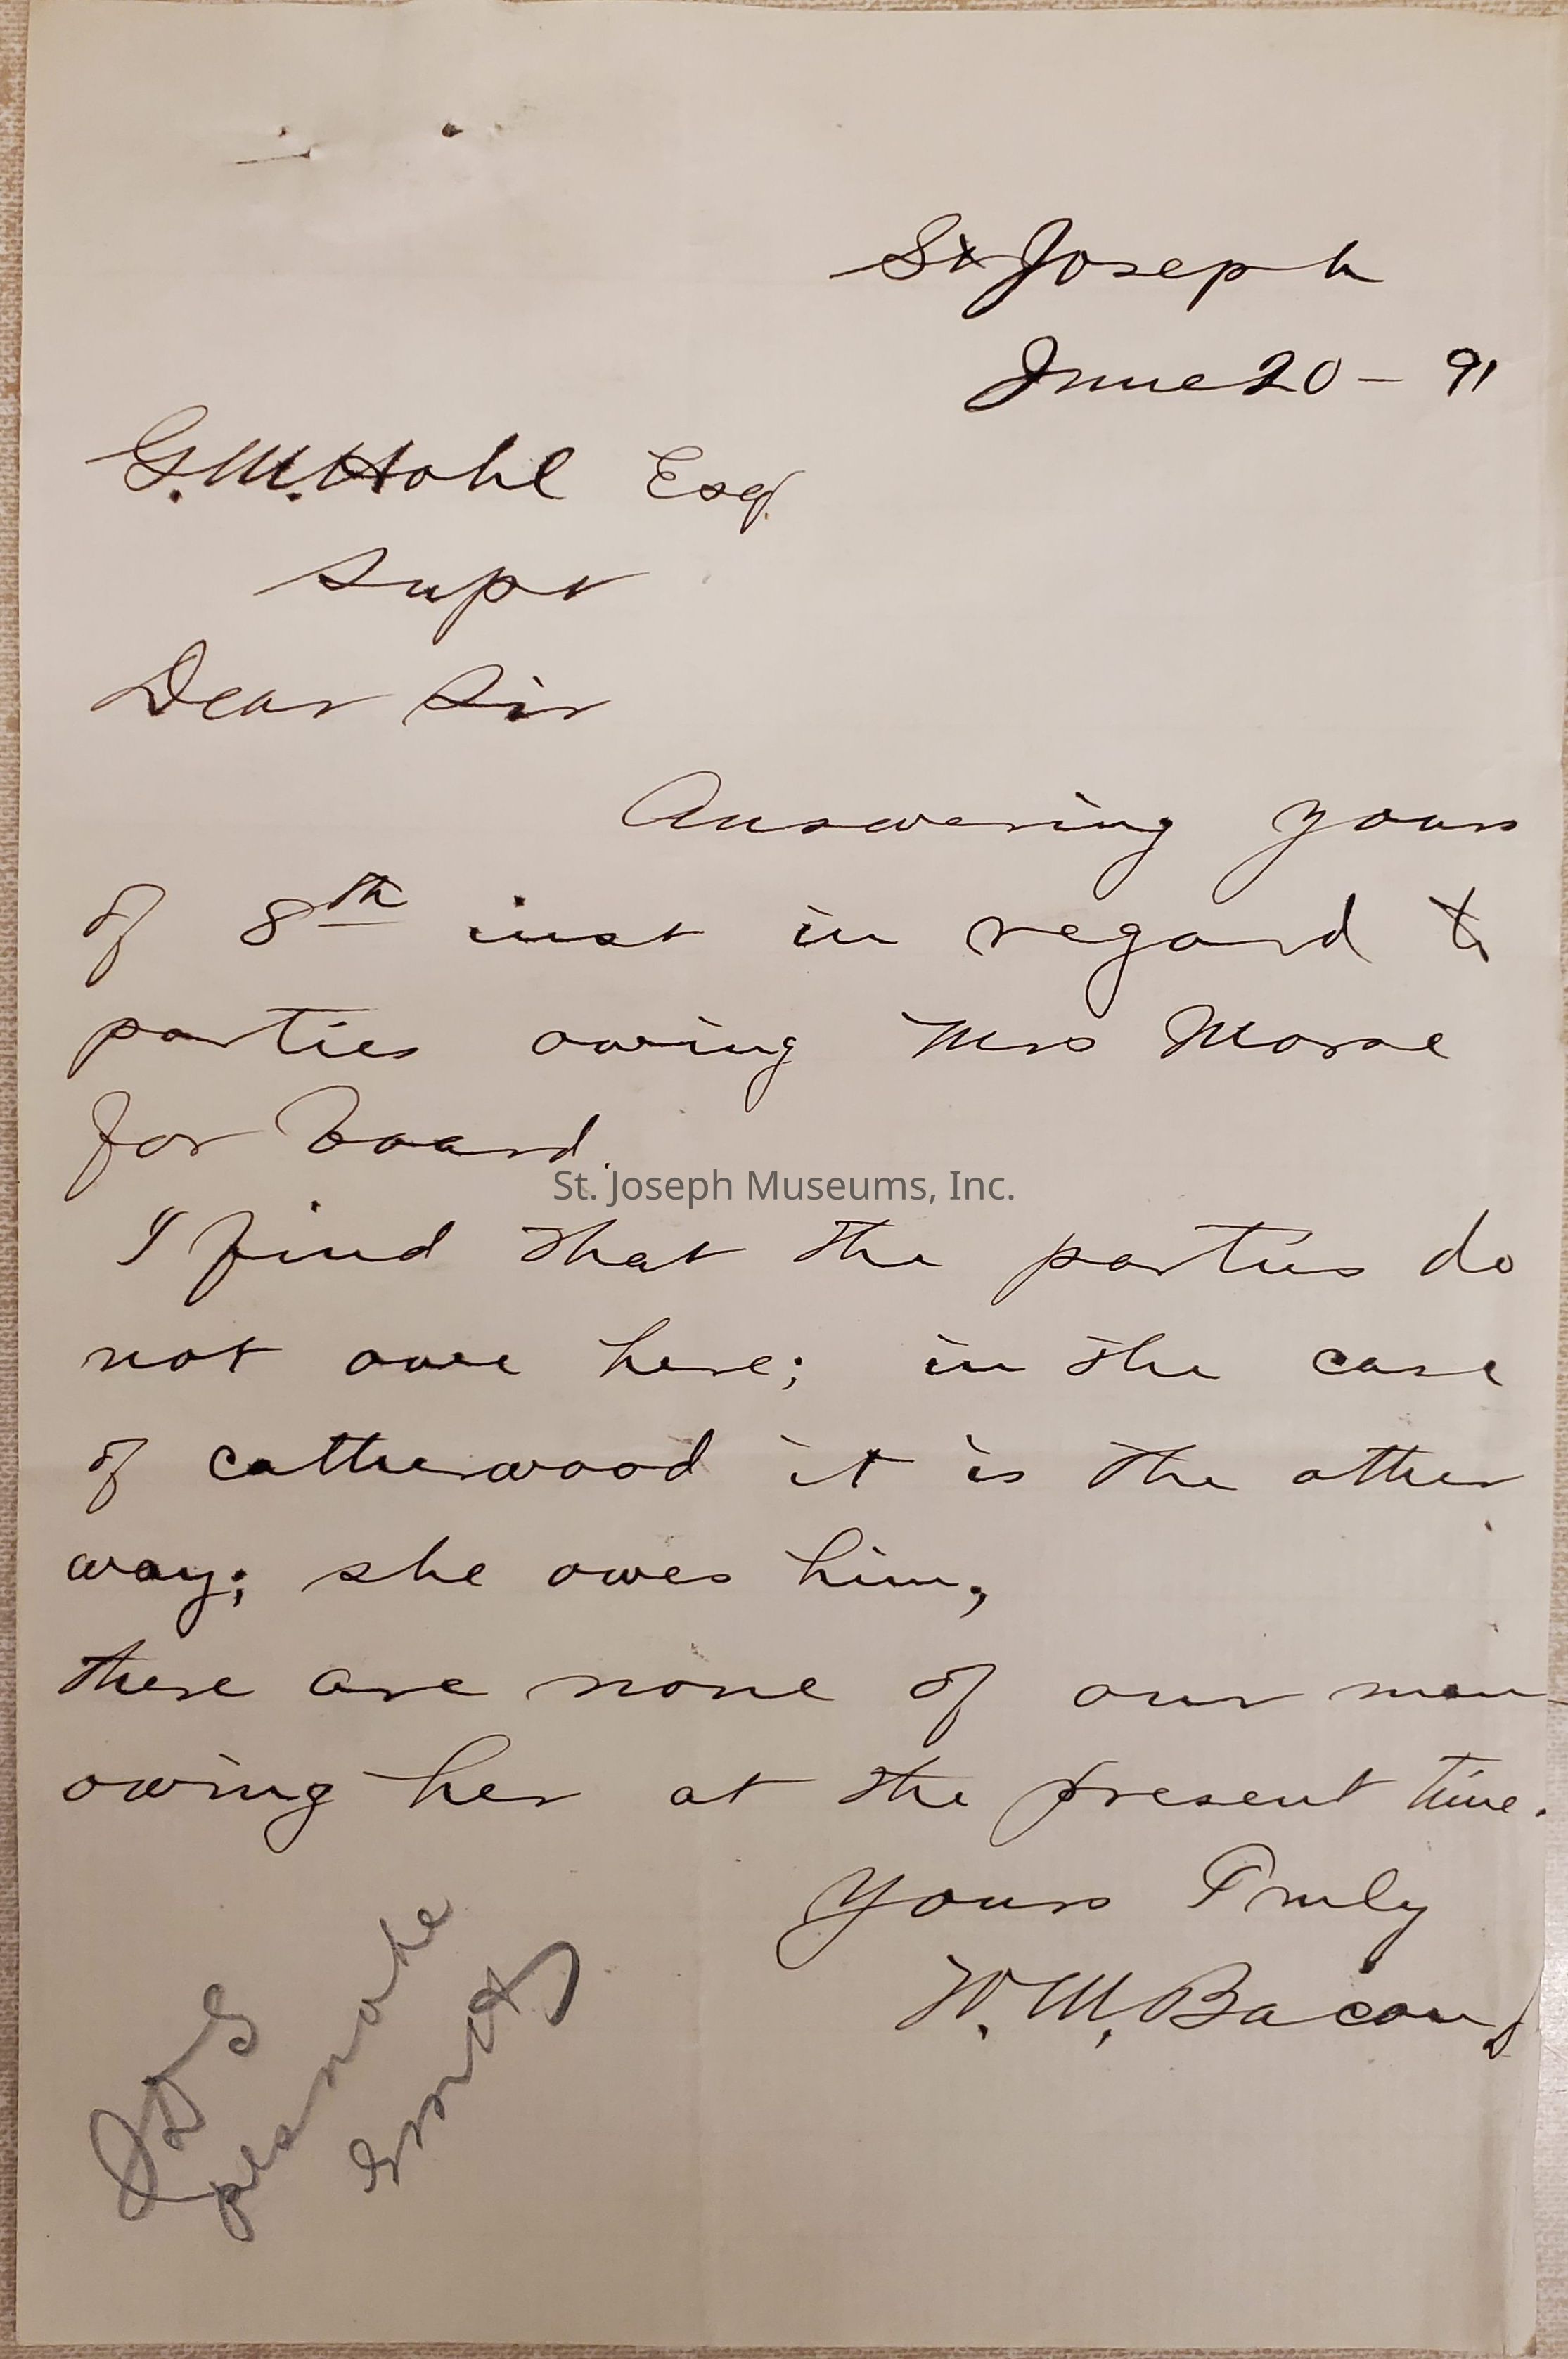 St Joseph
June 20 - 91
G. M. Hohl Esq.
Supt
Dear Sir
Answering yours
of 8th inst in regard to
parties owing Mrs Morse
for board.
I find that the parties do
not owe here; in the case
of Catherwood it is the other
way; she owes him,
there are none of our men
owing her at the present time.
Yours Truly
W. M. Bacon
St. Joseph Museums, Inc.
pls note